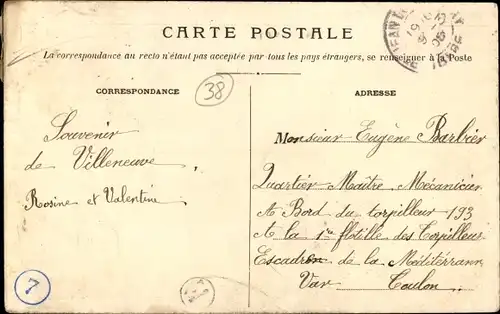 CARTE POSTALE
La correspondance au recto n'étant pas acceptée par tous les pays étrangers, se renseigner à la Poste
CORRESPONDANCE
38
ADRESSE
Souvenir
de Villeneuve,
Rosine et Valentine
Monsieur Eugène Barbier
Quartier-Maître Mécanicien
A Bord du torpilleur 193
A la 1re flotille des Torpilleurs
Escadron de la Méditerrann
Var Toulon
7